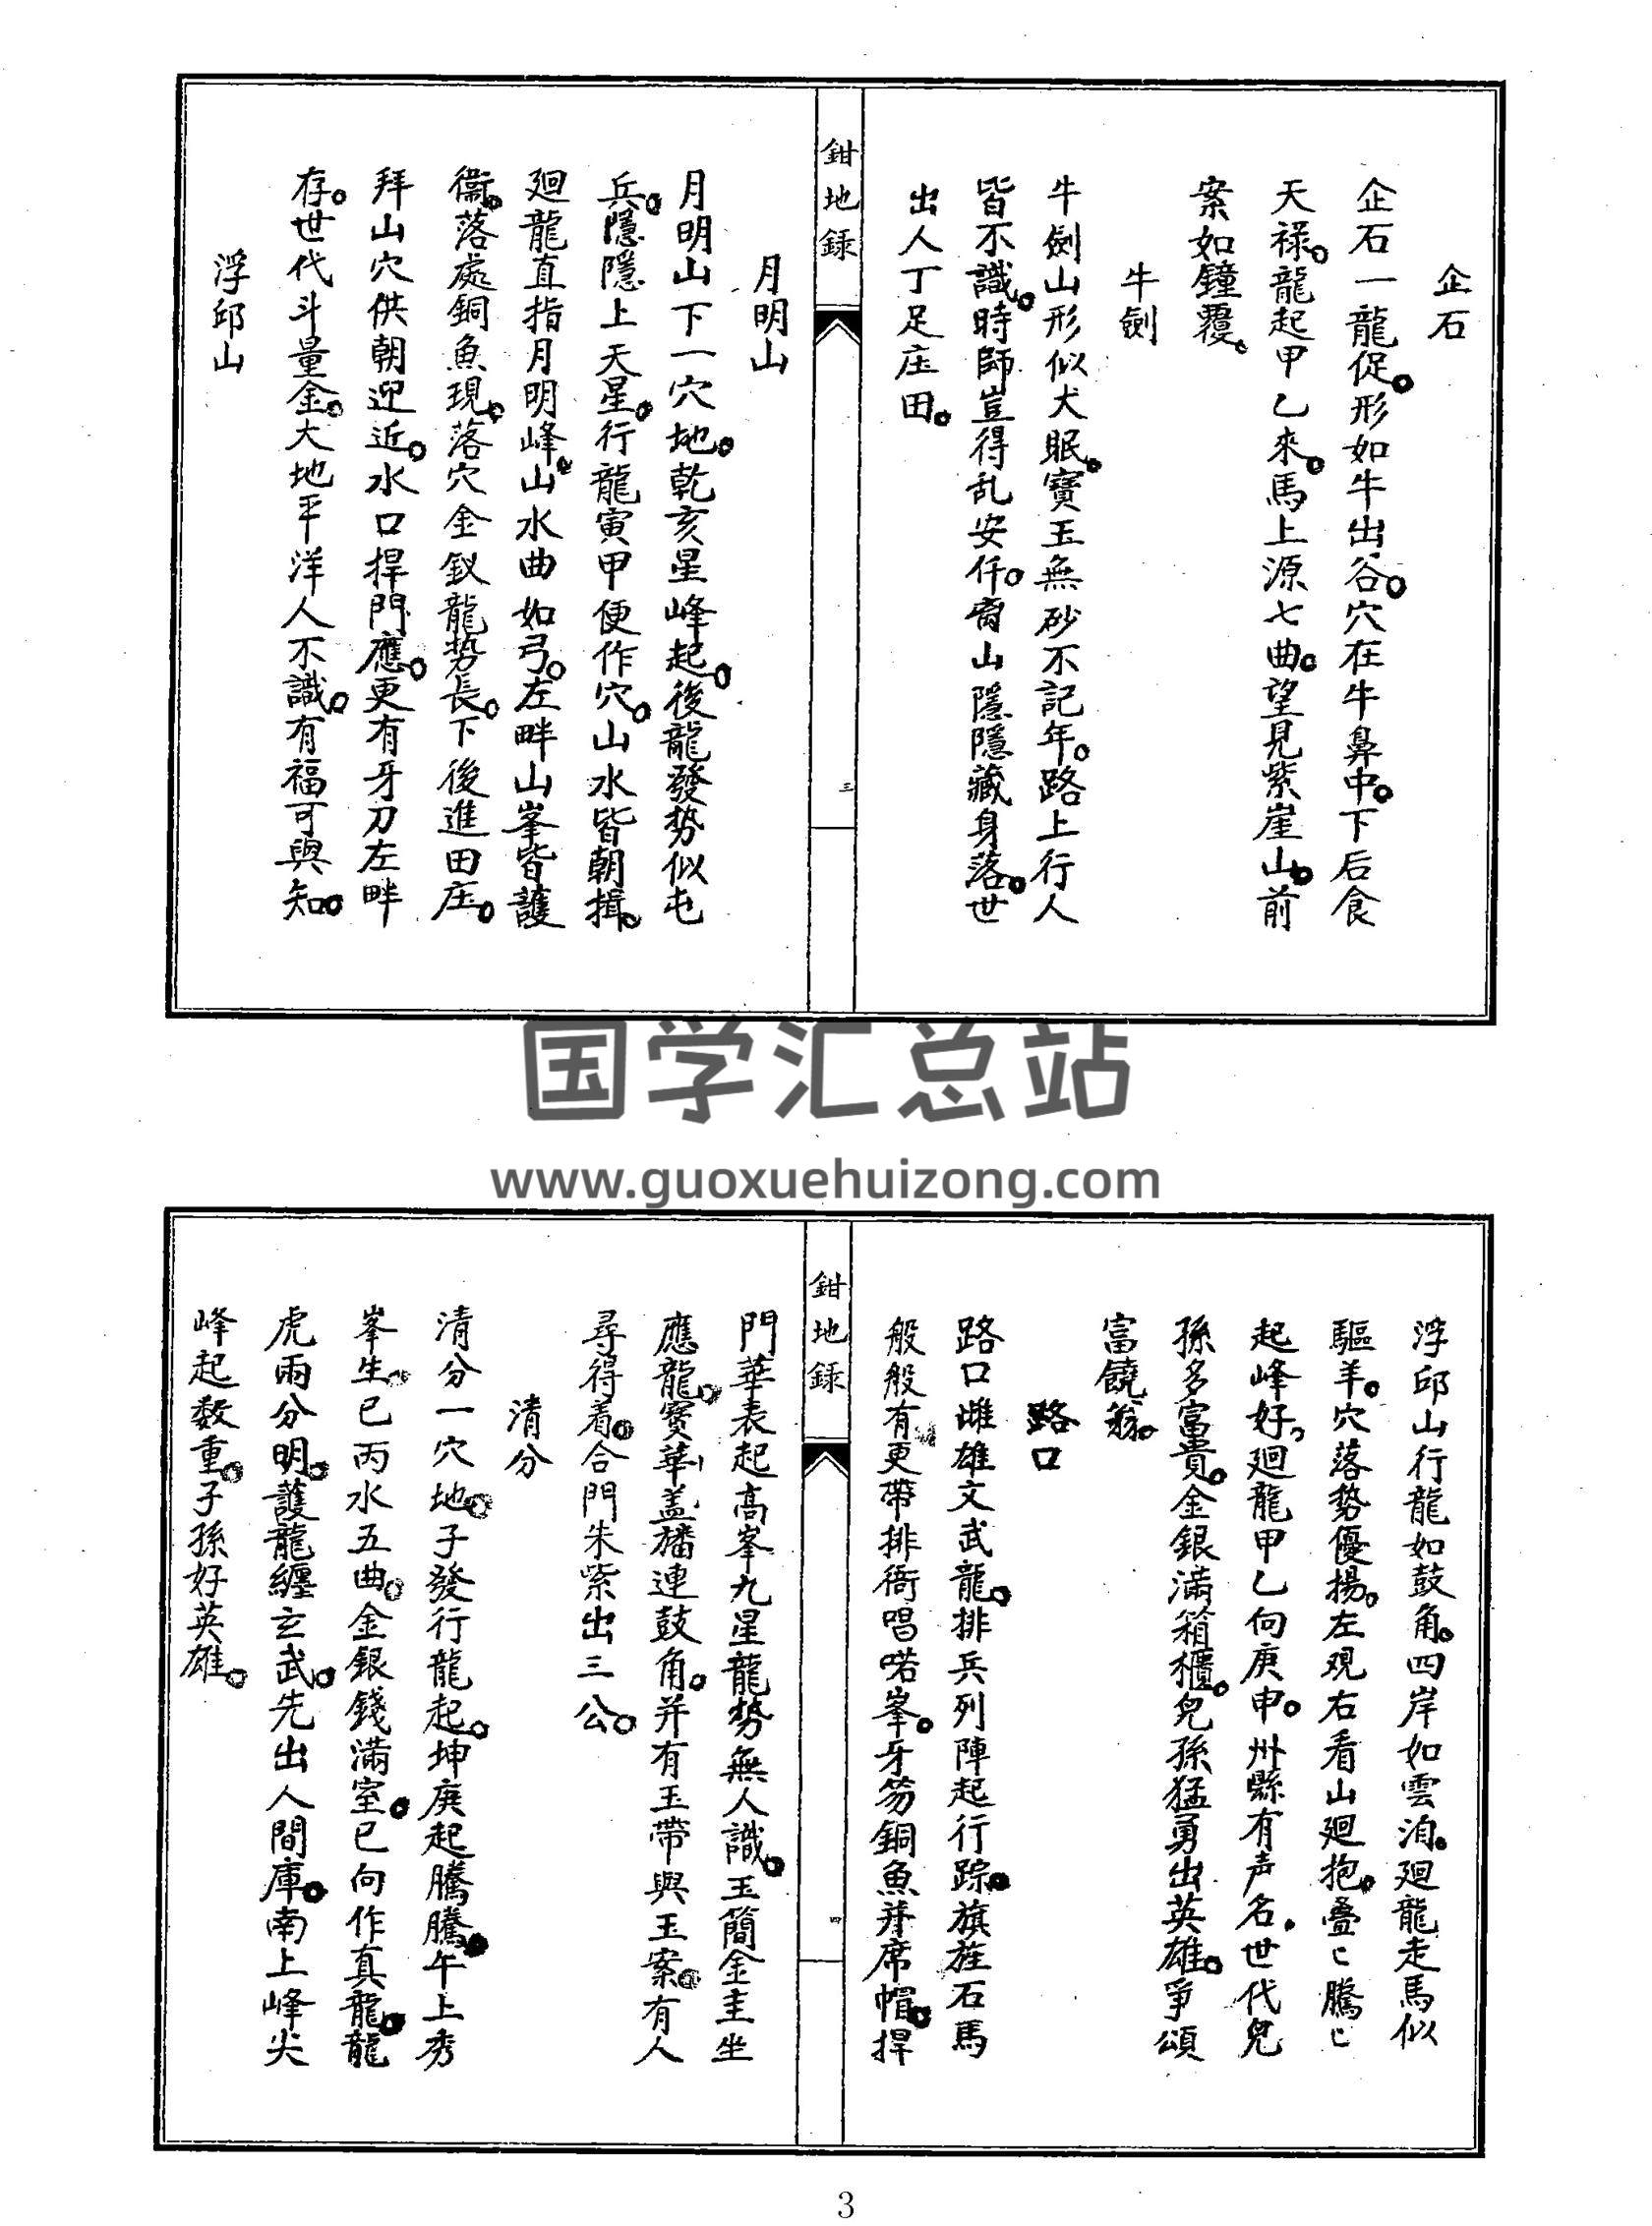 企石
企石一龍促。形如牛出谷。穴在牛鼻中。下后食
天祿。龍起甲乙來。馬上源七曲。望見紫崖山。前
案如鐘覆。
牛劍
牛劍山形似犬眠。寶玉無砂不記年。路上行人
皆不識。時師豈得乱安仟。 山隱隱藏身落。世
出人丁足庄田。
鉗地録
三
月明山
月明山下一穴地。乾亥星峰起。後龍發势似屯
兵。隱隱上天星。行龍寅甲便作穴。山水皆朝揖。
廻龍直指月明峰。山水曲如弓。左畔山峯皆護
衞。落處銅魚現。落穴金釵龍势長。下後進田庄。
拜山穴供朝迎近。水口捍門應。更有牙刀左畔
存。世代斗量金。大地平洋人不識。有福可與知。
浮邱山
国学汇总站
www.guoxuehuizong.com
浮邱山行龍如鼓角。四岸如雲洎。廻龍走馬似
驅羊。穴落勢優揚。左观右看山廻抱。叠〻騰〻
起峰好。廻龍甲乙向庚申。州縣有声名。世代兒
孫多富貴。金銀滿箱櫃。兒孫猛勇出英雄。爭頌
富饒翁。
路口
路口雌雄文武龍。排兵列陣起行踪。旗旌石馬
般般有。更帶排衙唱喏峯。牙笏銅魚并席帽。捍
鉗地録
四
門華表起高峯九星龍勢無人識。玉簡金圭坐
應龍。寳華盖旛連鼓角。并有玉帶與玉案。有人
尋得着。合門朱紫出三公。
清分
清分一穴地。子發行龍起。坤庚起騰騰。午上秀
峯生。巳丙水五曲。金銀錢滿室。巳向作真龍。龍
虎兩分明。護龍纏玄武。先出人間庫。南上峰尖
峰起数重。子孫好英雄。
3